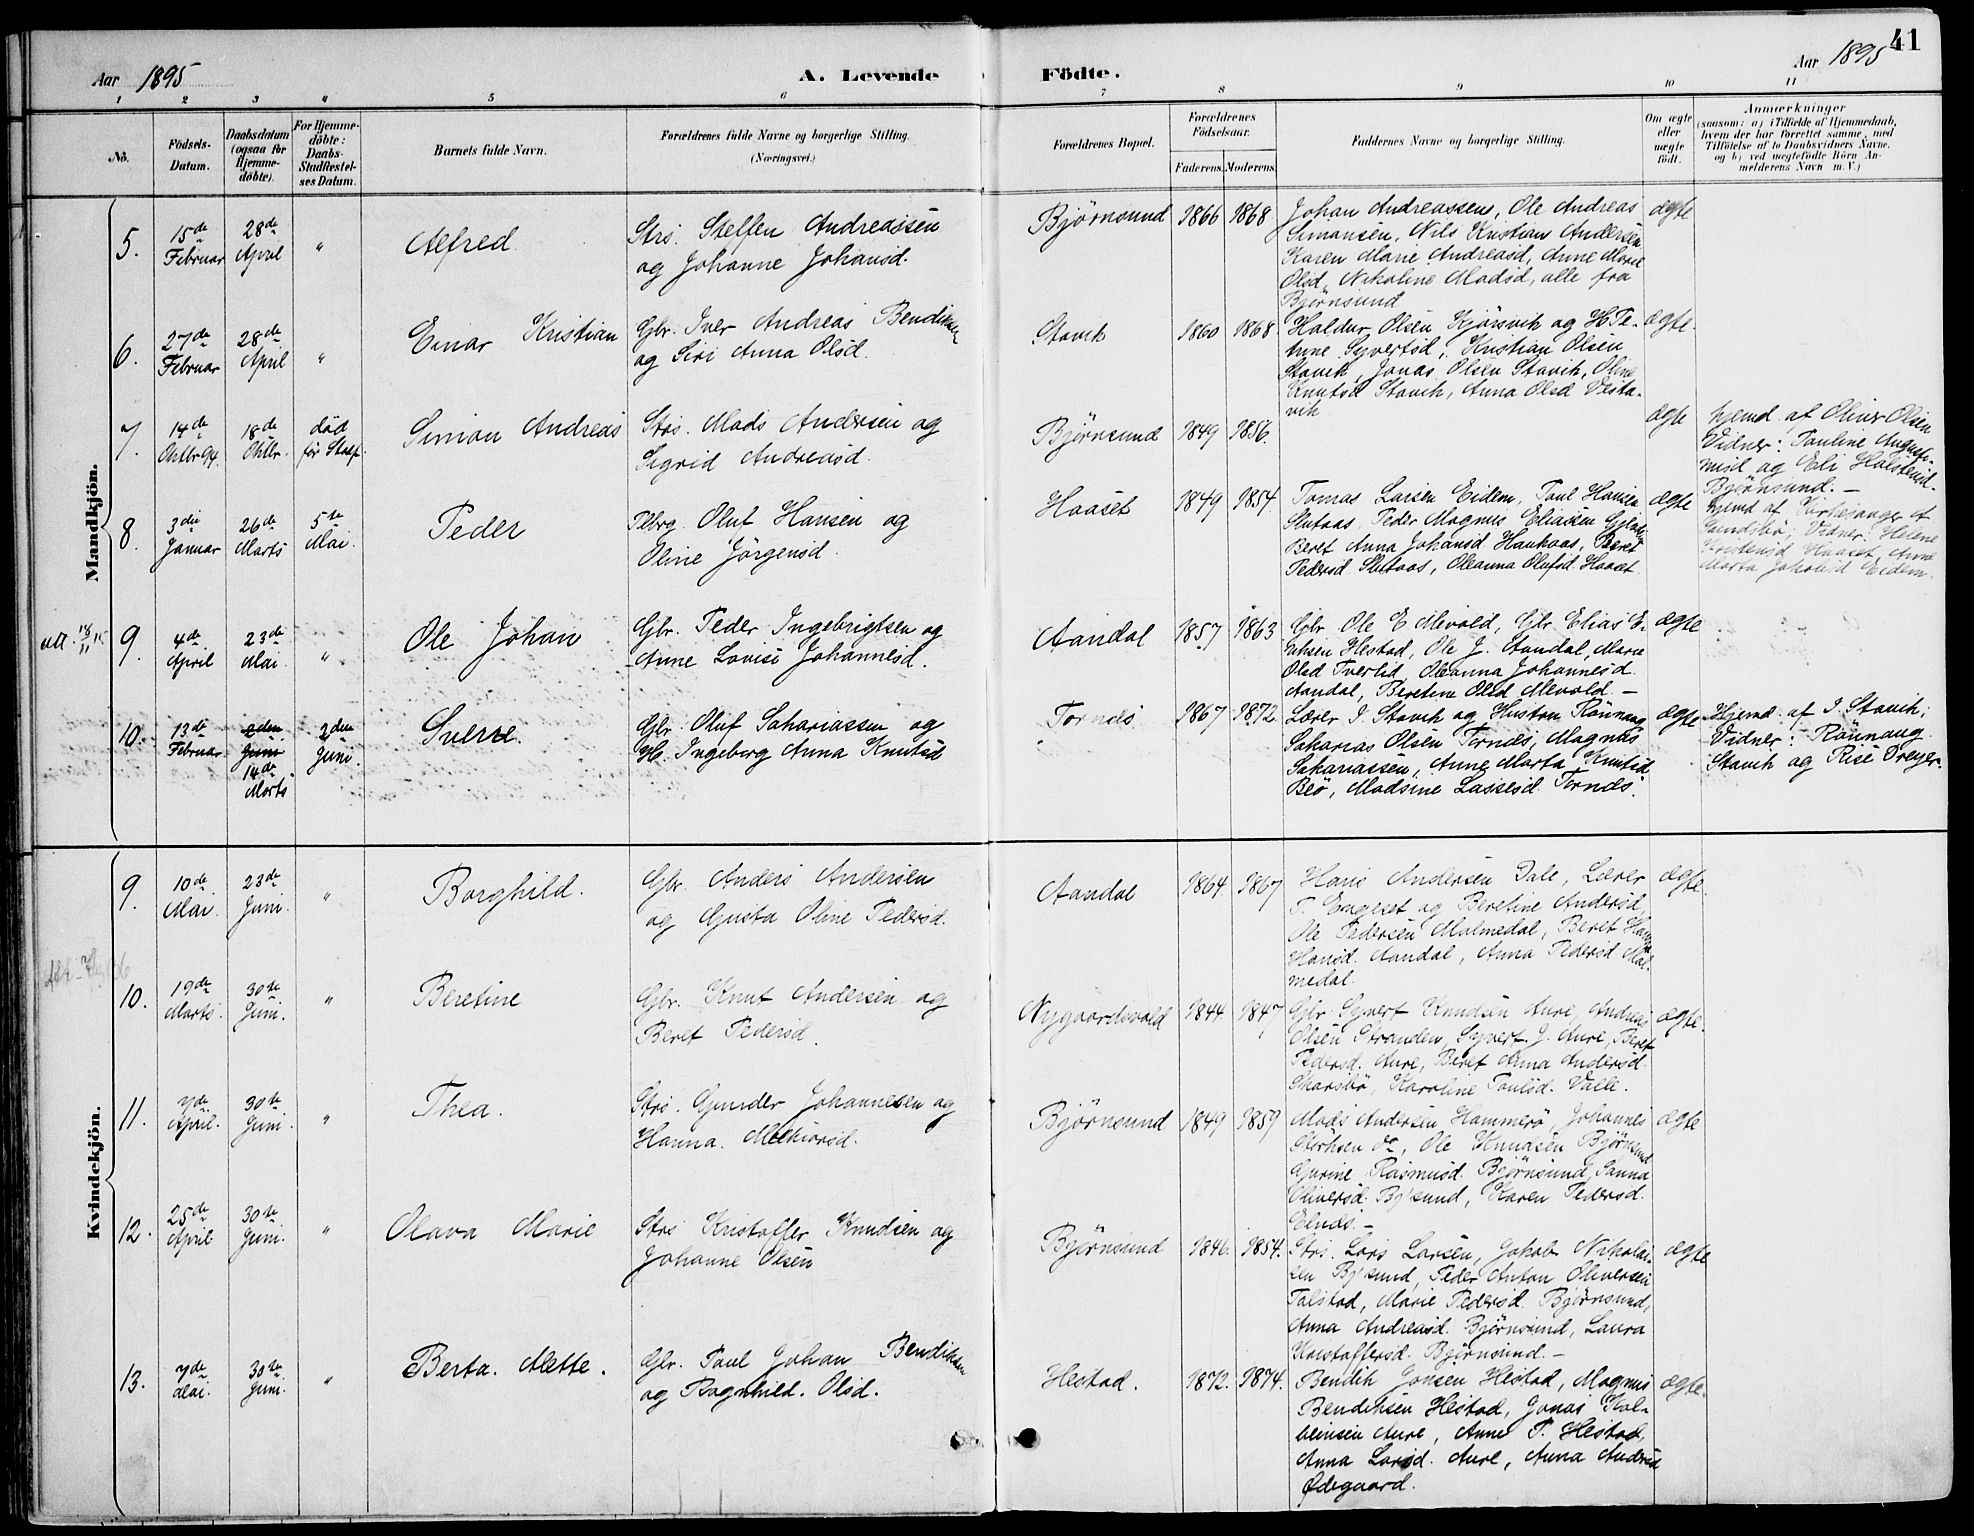 41
Aar 1895
A. Levende Födte.
Aar 1895
1 2 3 4 5 6 7 8 9 10 11
No.
Födsels-Datum.
Daabsdatum (ogsaa for Hjemme-döbte).
For Hjemme-döbte: Daabs-Stadfæstel-ses Datum.
Barnets fulde Navn.
Forældrenes fulde Navne og borgerlige Stilling.
(Næringsvei.)
Forældrenes Bopæl.
Forældrenes Födselsaar.
Faderens. Moderens.
Faddernes Navne og borgerlige Stilling.
Om ægte eller uægte født.
Anmærkninger
(saasom: a) i Tilfælde af Hjemmedaab,
hvem der har forrettet samme, med
Tilföielse af to Daabsvidners Navne,
og b) ved uægtefödte Börn An-
melderens Navn m.V.)
Mandkjön.
5. 15de Februar 28de April "
Alfred
Strs. Steffen Andreassen
og Johanne Johansd.
Bjørnsund 1866 1868
Johan Andreassen, Ole Andreas
Simonsen, Nils Kristian Andersen
Karen Marie Andreasd, Anne Marie
Olsd, Nikoline Madsd, alle fra
Bjørnsund
ægte
6. 27de Februar 28de April "
Einar Kristian
Gbr. Iver Andreas Bendiksen
og Siri Anna Olsd.
Stavik 1860 1868
Haldur Olsen Kjørsvik og H. Pe-
trine Syvertsd, Kristian Olsen
Stavik, Jonas Olsen Stavik, Oline
Knutsd Stavik, Anna Olsd Vesta-
vik
ægte.
7. 14de Oktbr 94. 18de Oktbr. død før Stadf.
Simon Andreas
Strs. Mads Andersen og
Sigrid Andreasd.
Bjørnsund 1849 1856.
ægte
hjemd. af Oliver Olsen
Vidner: Pauline Augusti-
nusd og Eli Halstensd.
Bjørnsund. –
8. 3die Januar 26de Marts 5te Mai.
Peder
Pbrg. Oluf Hansen og
Oline Jörgensd.
Haaset 1849 1854.
Tomas Larsen Eidem, Paul Hansen
Slutaas, Peder Magnus Eliassen
Beret Anna Johansd Haukaas, Beret
Pedersd Slutaas, Oleanna Olufsd. Haaset
ægte
hjemd af Kirkesanger
Vidner: Helene
Kristensd Haaset, Anne
Marta Jakobsd Eidem.
9. 4de April 23de Mai. "
Ole Johan
Gbr. Peder Ingebrigtsen og
Anne Lovise Johannesd.
Aandal 1857 1863
Gbr. Ole E Mevold, Gbr Elias E-
riksen Hestad, Ole J. Aandal, Marie
Olsd Tverlid, Oleanna Johannesd
Aandal, Beretine Olsd Mevold. –
ægte
10. 13de Februar 2den Juni 14de Marts 2den Juni.
Sverre.
Gbr. Oluf Sakariassen og
H. Ingeborg Anna Knutsd
Tornæs 1867 1872
Lærer I. Stavik og Hustru Rönnaug
Sakarias Olsen Tornæs, Magnus
Sakariassen, Anne Marta Knutsd
Beö, Madsine Lassesd. Tornæs.
ægte
Hjemd. af I. Stavik;
Vidner: Rönnaug
Stavik og Risé Dreyer.
Kvindekjön.
9. 10de Mai. 23de Juni. "
Borghild.
Gbr. Anders Andersen
og Gjusta Oline Pedersd.
Aandal 1864 1867
Hans Andersen Dale, Lærer
P. Engeset og Beretine Andersd
Ole Pedersen Malmedal, Beret
Hansd. Aandal, Anna Pedersd Mal-
medal.
ægte.
10. 19de Marts. 30te Juni. "
Beretine
Gbr. Knut Andersen og
Beret Pedersd.
Nygaardsvold 1844 1847
Gbr Syvert Knudsen Aure, Andreas
Olsen Stranden, Syvert J. Aure, Beret
Pedersd. Aure, Beret Anna Andersd.
Skarsbö, Karoline Paulsd. Valle.
ægte.
11. 7de April. 30te Juni. "
Thea.
Strs. Gunder Johannesen og
Hanna. Melkiorsd.
Bjørnsund 1849 1859
Mads Andersen Hammerö, Johannes
do, Ole Knudsen Bjørnsund
Gurine Rasmusd. Bjørnsund, Sanna
Oliversd. Bj'sund, Karen Pedersd.
Elnæs. –
ægte
12. 25de April 30te Juni. "
Olava Marie
Strs Kristoffer Knudsen og
Johanne Olsen
Bjørnsund 1846. 1854.
Strs. Lars Larsen, Jakob Nikolai-
sen Bj'sund, Peder Anton Oliversen
Talstad, Marie Pedersd. Bjørnsund,
Anna Andreasd. Bjørnsund, Laura
Kristoffersd. Bjørnsund. –
ægte
13. 7de Mai. 30te Juni. "
Berta. Mette.
Gbr. Paul Johan Bendiksen
og Ragnhild. Olsd.
Hestad. 1872. 1874.
Bendik Jonsen Hestad, Magnus
Bendiksen Hestad, Jonas Kol-
beinsen Aure, Anne P. Hestad,
Anna Larsd. Aure, Anna Andersd
Ødegaard.
ægte.